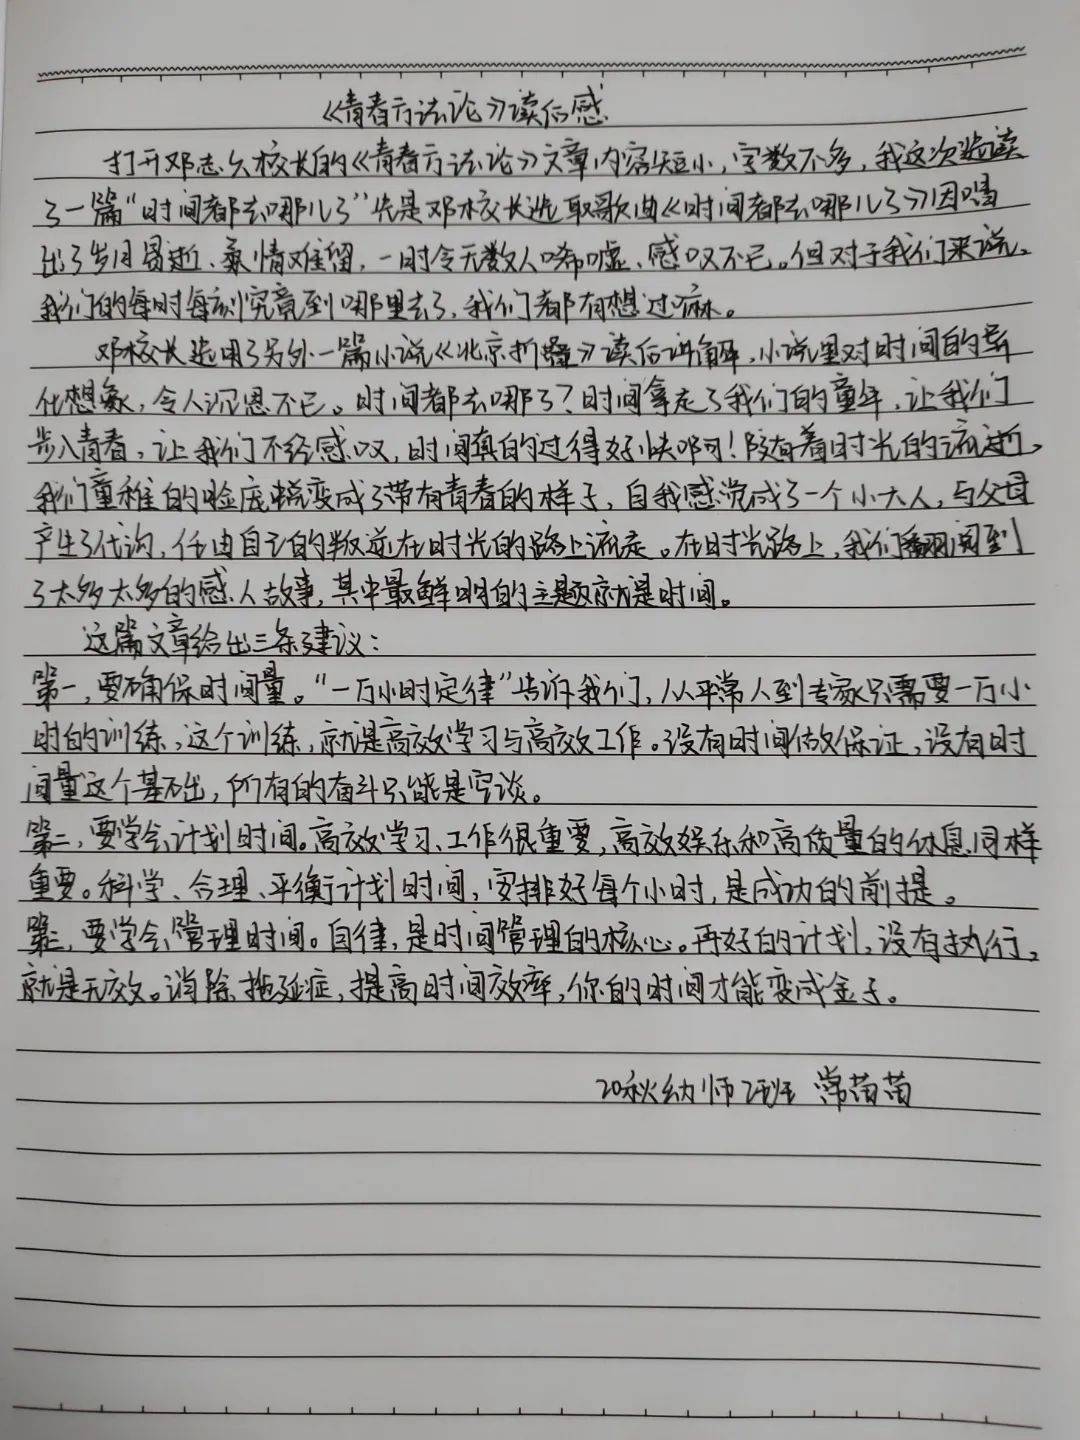 《青春方法论》读后感
打开邓志久校长的《青春方法论》文章内容短小，字数不多，我这次选读
了一篇“时间都去哪儿了”先是邓校长选取歌曲《时间都去哪儿了》因唱
出了岁月易逝、亲情难留，一时令无数人唏嘘、感叹不已。但对于我们来说，
我们的每时每刻究竟到哪里去了，我们都有想过嘛。
邓校长选用了另外一篇小说《北京折叠》读后讲解，小说里对时间的异
化想象，令人沉思不已。时间都去哪了？时间拿走了我们的童年，让我们
步入青春，让我们不经感叹，时间真的过得好快啊！随着时光的流逝，
我们童稚的脸庞蜕变成了带有青春的样子，自我感觉成了一个小大人，与父母
产生了代沟，任由自己的叛逆在时光的路上流走。在时光路上，我们翻阅到
了太多太多的感人故事，其中最鲜明的主题就是时间。
这篇文章给出三条建议：
第一，要确保时间量。“一万小时定律”告诉我们，从平常人到专家只需要一万小
时的训练，这个训练，就是高效学习与高效工作。没有时间做保证，没有时
间量这个基础，所有的奋斗只能是空谈。
第二，要学会计划时间。高效学习、工作很重要，高效娱乐和高质量的休息同样
重要。科学、合理、平衡计划时间，安排好每个小时，是成功的前提。
第三，要学会管理时间。自律，是时间管理的核心。再好的计划，没有执行，
就是无效。消除拖延症，提高时间效率，你的时间才能变成金子。
20秋幼师2班 常苗苗